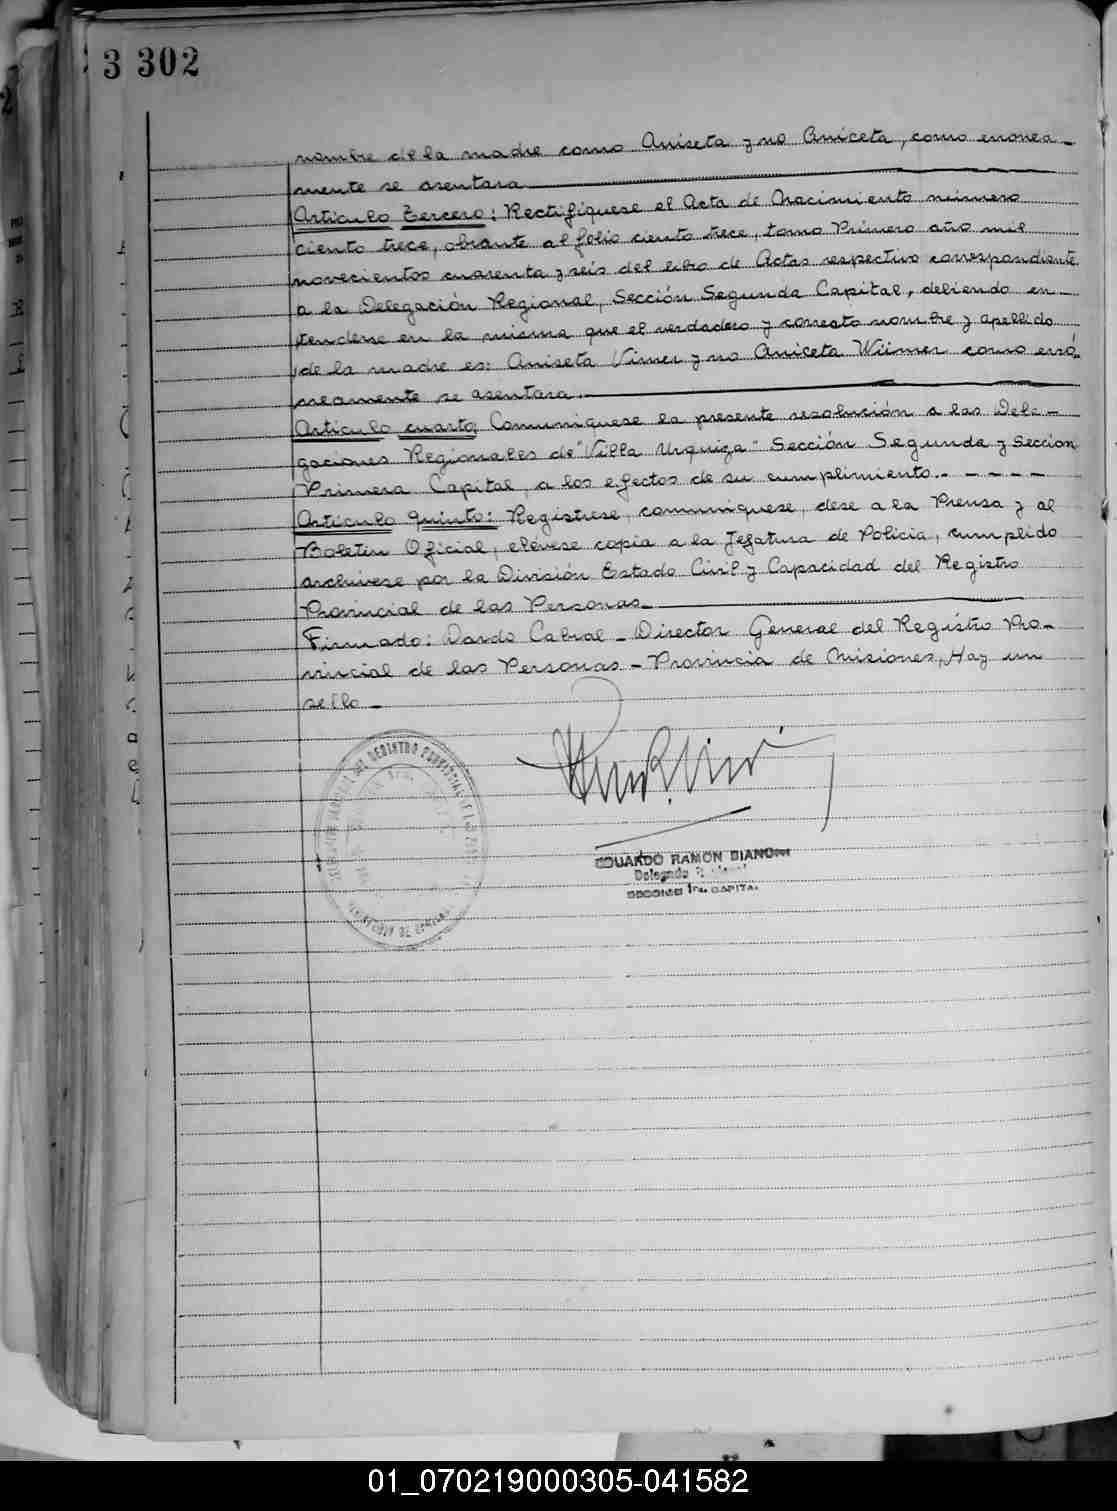 3 302
nombre de la madre como Aniseta y no Aniceta, como erronea-
mente se asentara
Artículo Tercero: Rectifíquese el Acta de Nacimiento número
ciento trece, obrante al folio ciento trece, tomo Primero año mil
novecientos cuarenta y seis del libro de Actas respectivo correspondiente
a la Delegación Regional, Sección Segunda Capital, debiendo en-
tenderse en la misma que el verdadero y correcto nombre y apellido
de la madre es: Aniseta Vimer y no Aniceta Wiimer como erró-
neamente se asentara.
Artículo cuarto: Comuníquese la presente resolución a las Dele-
gaciones Regionales de "Villa Urquiza" Sección Segunda y Sección
Primera Capital, a los efectos de su cumplimiento. - - - - -
Artículo quinto: Regístrese, comuníquese, dese a la Prensa y al
Boletín Oficial, elévese copia a la Jefatura de Policía, cumplido
archívese por la División Estado Civil y Capacidad del Registro
Provincial de las Personas.
Firmado: Dardo Cabral - Director General del Registro Pro-
vincial de las Personas - Provincia de Misiones, Hay un
sello. -
EDUARDO RAMON
Delegado
CAPITAL
01_070219000305-041582